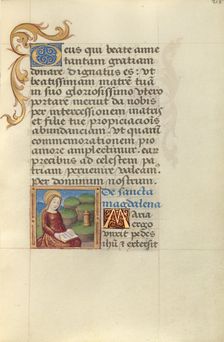 Deus qui beate anne
tantam gratiam
donare dignatus es: vt
beatissimam matrē tuā
in suo gloriosissimo vtero
portare meruit da nobis
per intercessionem matris
et filie tue propiciacōis
abundanciam. vt quarū
commemorationem pio
amore amplectimur. ear
precibus ad celestem pa
triam peruenire valeam9.
Per dominum nostrum.
De sancta
magdalena
Maria
ergo
vnxit pedes
ihū et extersit